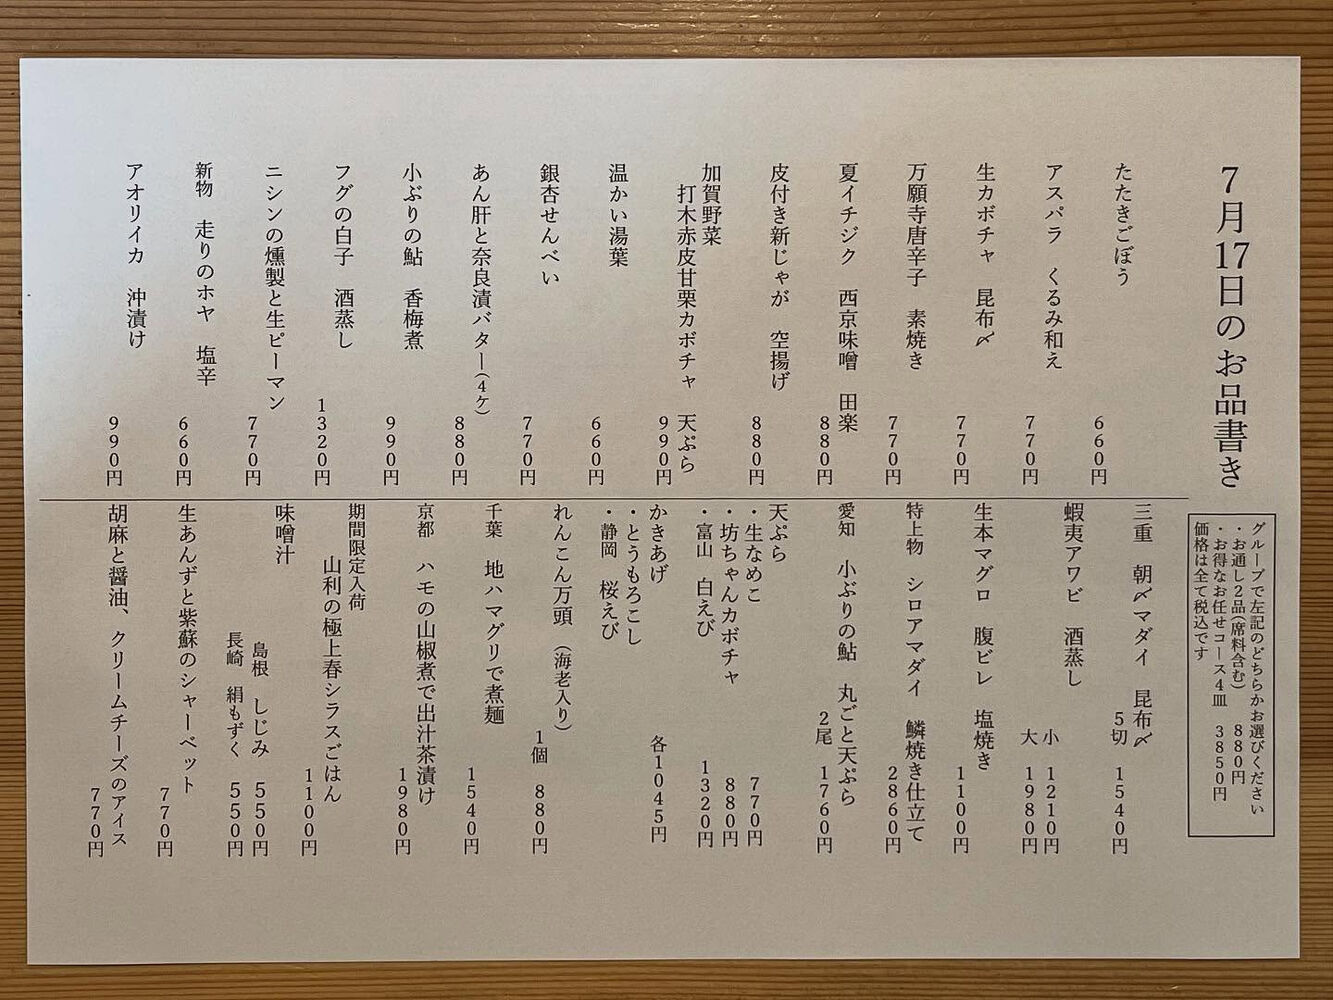 7月17日のお品書き
グループで左記のどちらかお選びください
・お通し2品(席料含む) 880円
・お得なお任せコース4皿 3850円
価格は全て税込です
たたきごぼう
660円
アスパラ くるみ和え
770円
生カボチャ 昆布〆
770円
万願寺唐辛子 素焼き
770円
夏イチジク 西京味噌 田楽
880円
皮付き新じゃが 空揚げ
880円
加賀野菜
打木赤皮甘栗カボチャ 天ぷら
990円
温かい湯葉
660円
銀杏せんべい
770円
あん肝と奈良漬バター(4ケ)
880円
小ぶりの鮎 香梅煮
990円
フグの白子 酒蒸し
1320円
ニシンの燻製と生ピーマン
770円
新物 走りのホヤ 塩辛
660円
アオリイカ 沖漬け
990円
三重 朝〆マダイ 昆布〆
5切 1540円
蝦夷アワビ 酒蒸し
小 1210円
大 1980円
生本マグロ 腹ビレ 塩焼き
1100円
特上物 シロアマダイ 鱗焼き仕立て
2860円
愛知 小ぶりの鮎 丸ごと天ぷら
2尾 1760円
天ぷら
・生なめこ 770円
・坊ちゃんカボチャ 880円
・富山 白えび 1320円
かきあげ 各1045円
・とうもろこし
・静岡 桜えび
れんこん万頭 (海老入り)
1個 880円
千葉 地ハマグリで煮麺
1540円
京都 ハモの山椒煮で出汁茶漬け
1980円
期間限定入荷
山利の極上春シラスごはん
1100円
味噌汁
島根 しじみ 550円
長崎 絹もずく 550円
生あんずと紫蘇のシャーベット
770円
胡麻と醤油、クリームチーズのアイス
770円